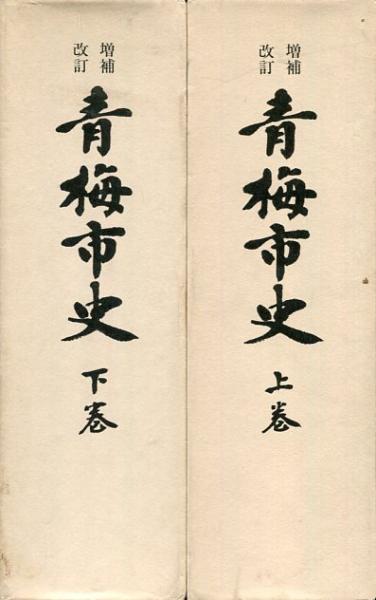 増補
改訂
青梅市史
上巻
増補
改訂
青梅市史
下巻